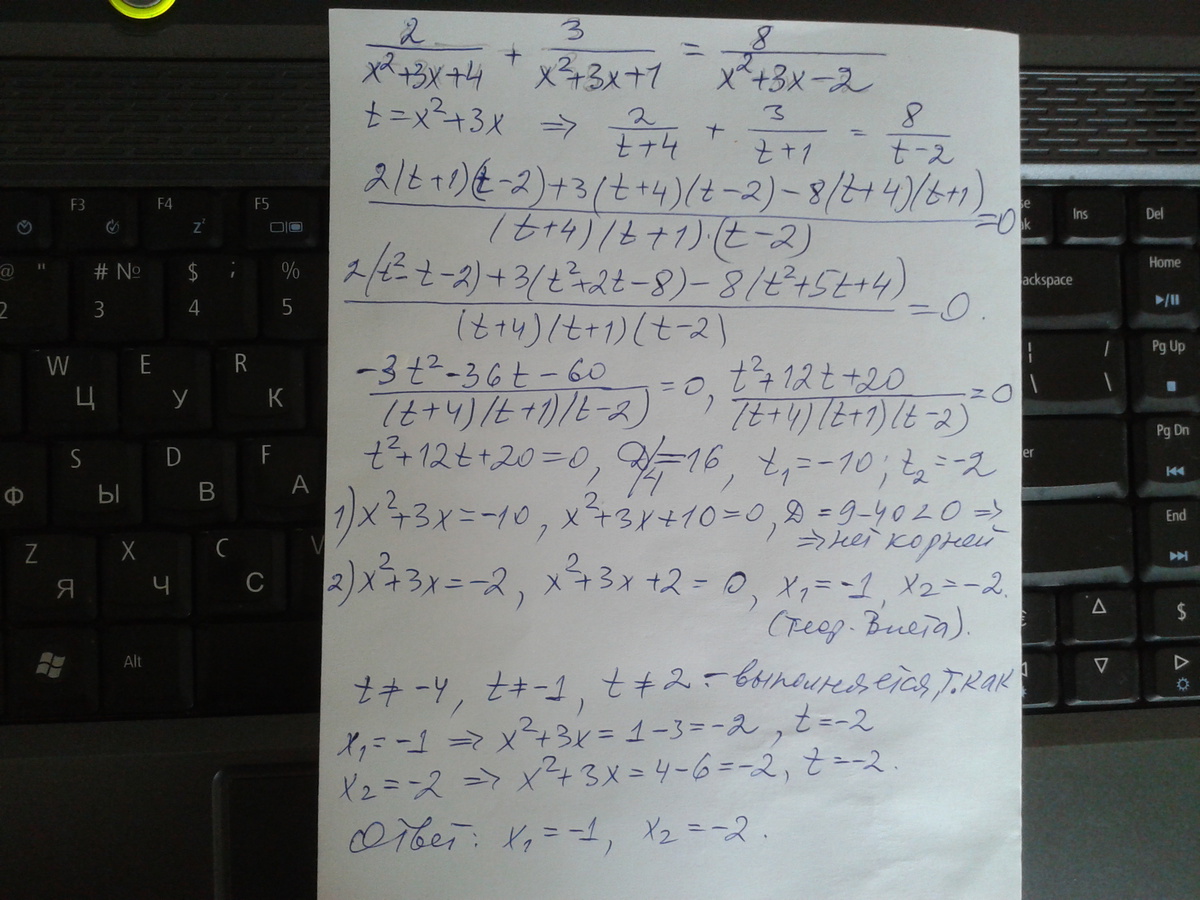 2/(x²+3x+4) + 3/(x²+3x+1) = 8/(x²+3x-2)
t=x²+3x ⇒ 2/(t+4) + 3/(t+1) = 8/(t-2)
(2(t+1)(t-2)+3(t+4)(t-2)-8(t+4)(t+1))/((t+4)(t+1)·(t-2)) =0
(2(t²-t-2)+3(t²+2t-8)-8(t²+5t+4))/((t+4)(t+1)(t-2)) =0.
(-3t²-36t-60)/((t+4)(t+1)(t-2)) =0, (t²+12t+20)/((t+4)(t+1)(t-2)) =0
t²+12t+20=0, D/4=16, t₁=-10; t₂=-2
1) x²+3x=-10, x²+3x+10=0, D=9-40<0 ⇒
⇒ нет корней
2) x²+3x=-2, x²+3x+2=0, x₁=-1, x₂=-2.
(теор. Виета).
t≠-4, t≠-1, t≠2 - выполняется, т. как
x₁=-1 ⇒ x²+3x=1-3=-2, t=-2
x₂=-2 ⇒ x²+3x=4-6=-2, t=-2.
Ответ: x₁=-1, x₂=-2.
F3
F4
zᶻ
F5
Ins
Del
@ "
2
# №
3
$ ;
4
% :
5
ackspace
Home
W
Ц
E
У
R
К
Pg Up
S
Ы
D
В
F
А
Ф
Pg Dn
Z
Я
X
Ч
C
С
V
End
Alt
$